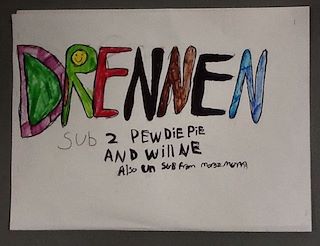 DRENNEN
Sub 2 PEWDIEPIE
AND WillNE
Also un SuB from